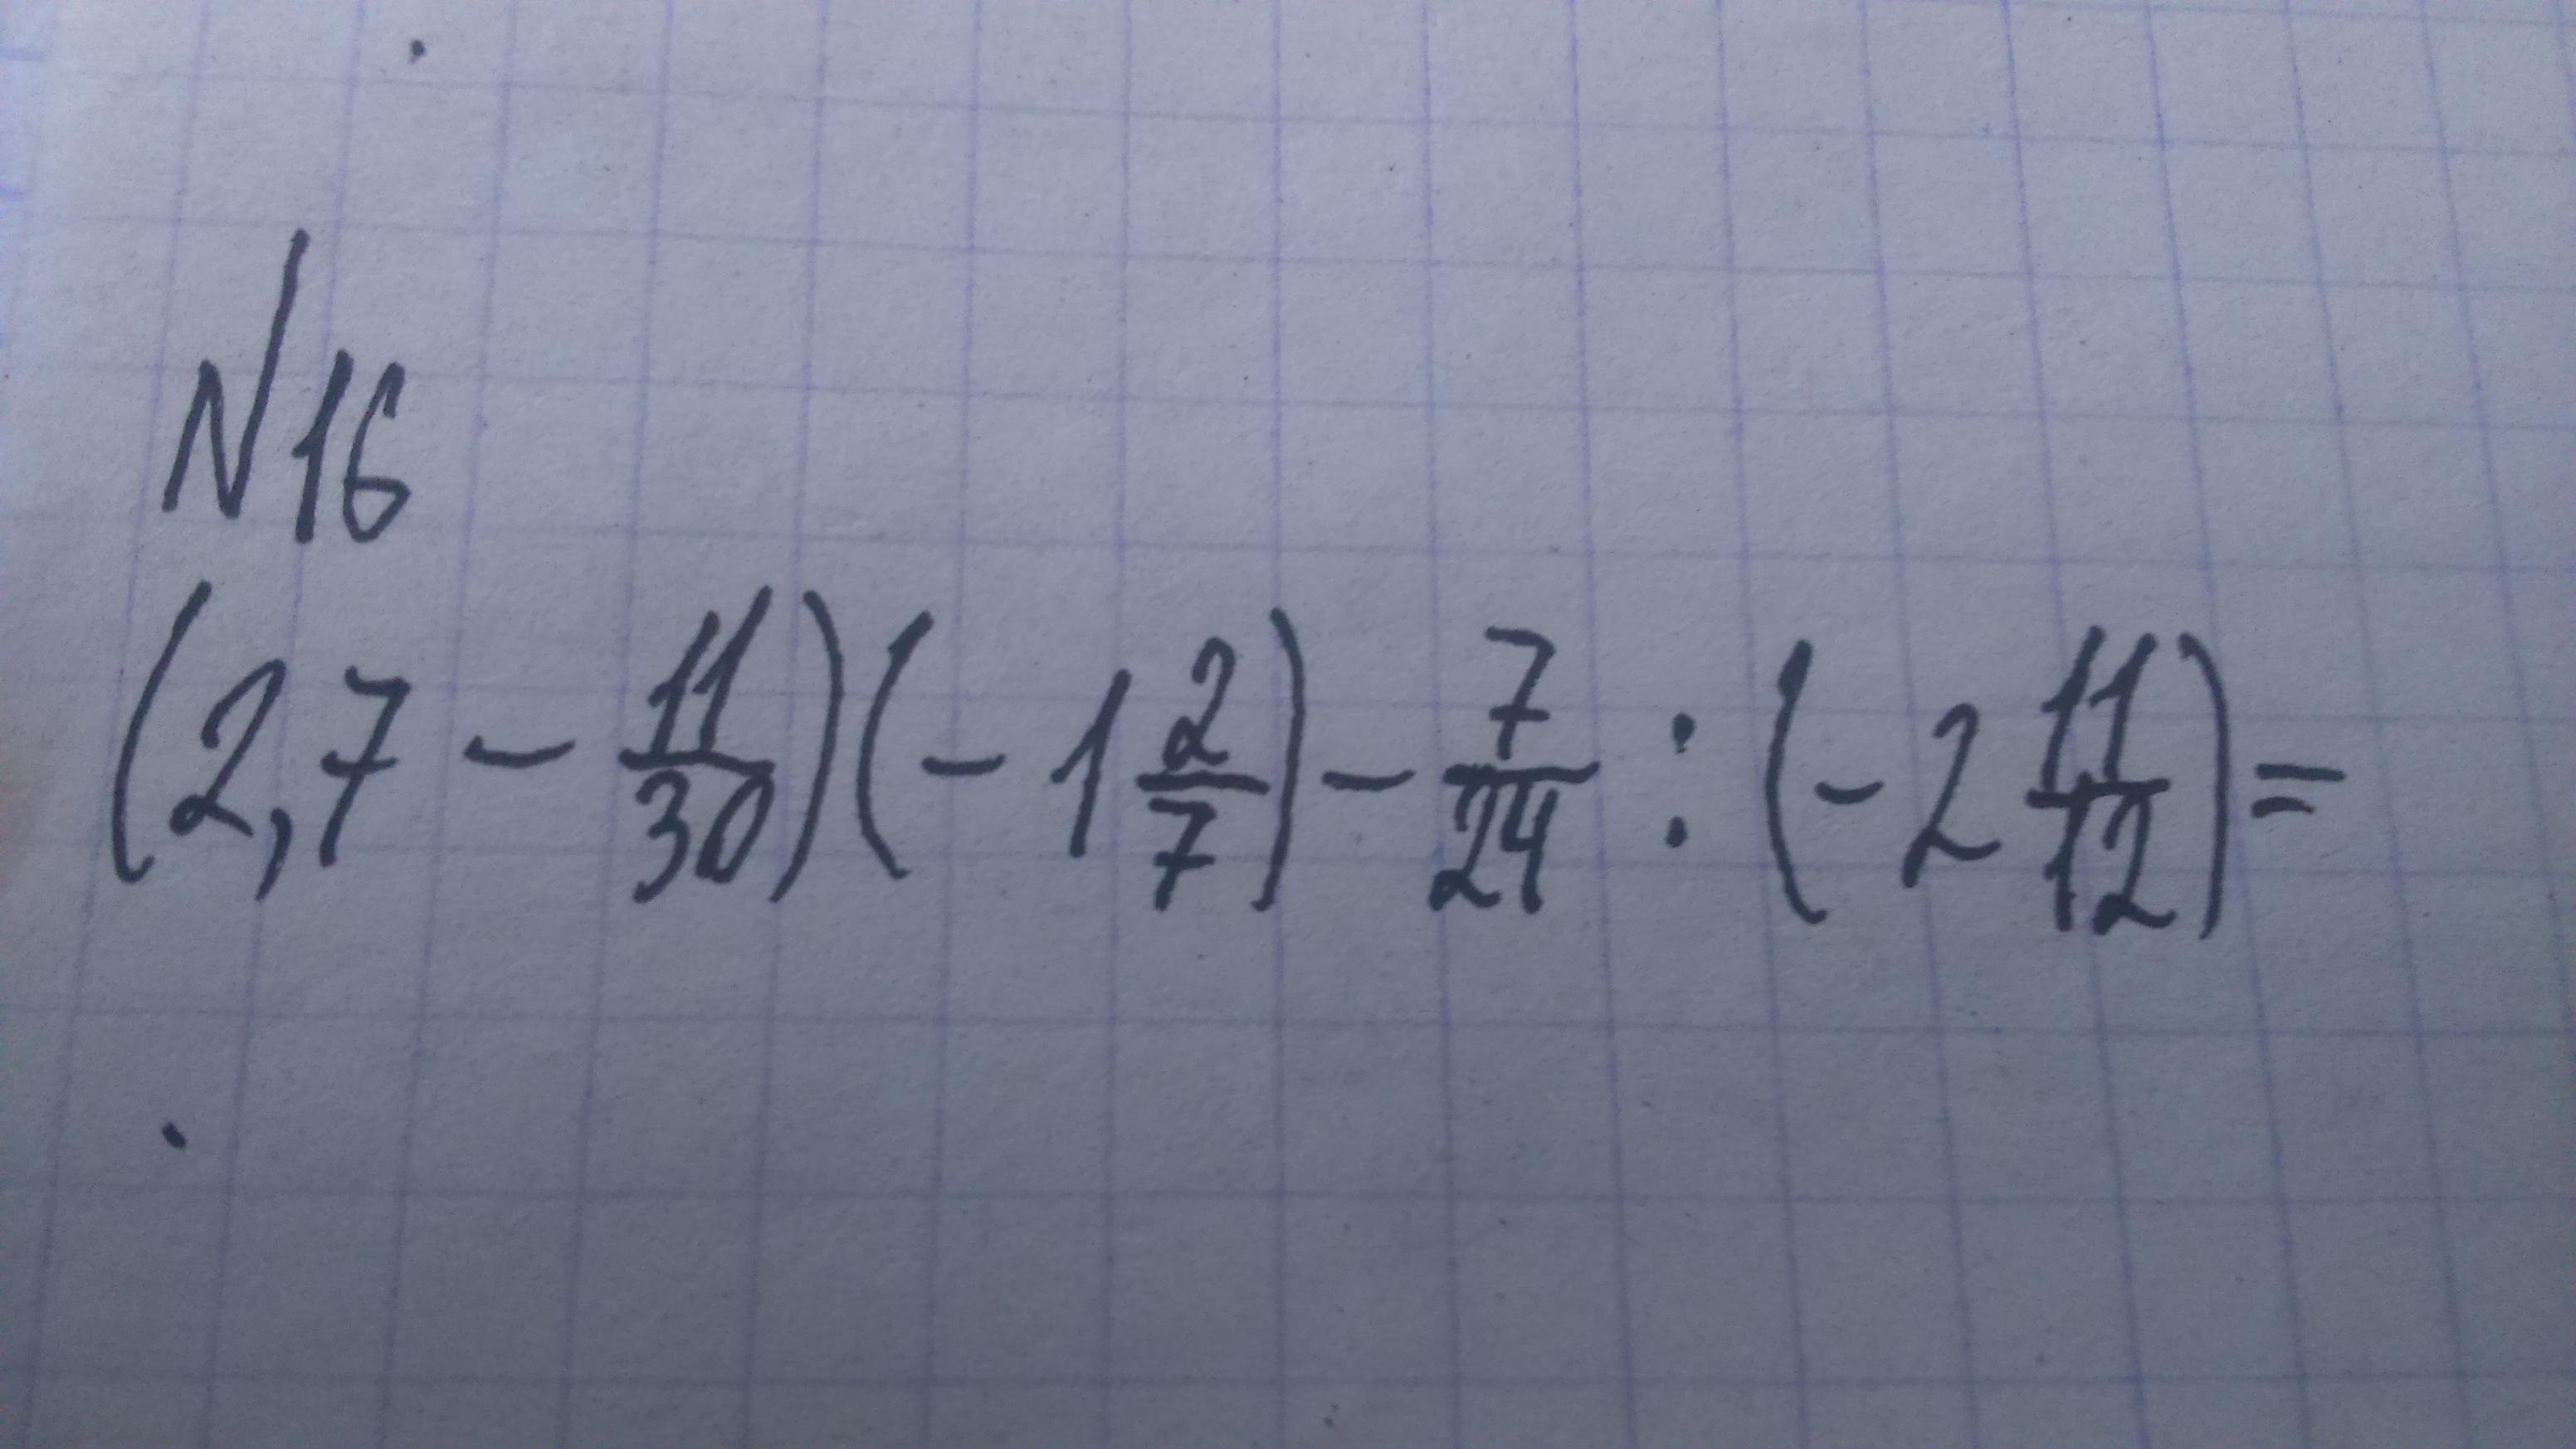 N16
(2,7 - 11/30)(- 1 2/7) - 7/24 : (- 2 11/12) =